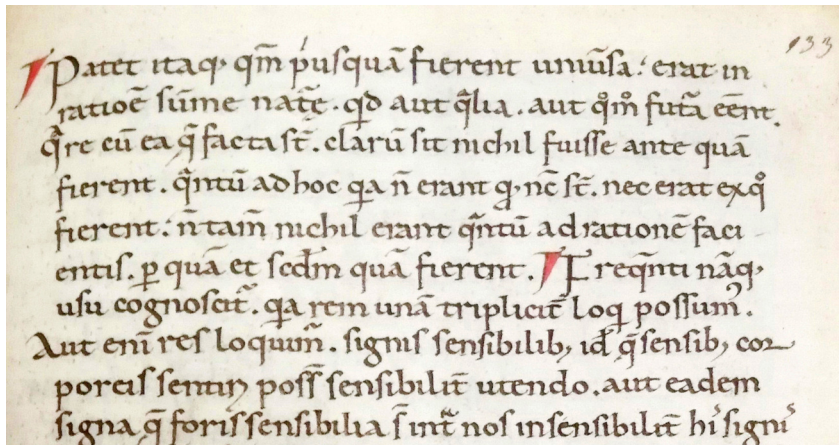 133
Patet itaq; qm̄ p'usquā fierent uniūsa. erat in
ratiōe sūme nat̄ę. qd aut q̄lia. aut qōm̊ fut̄a eēnt.
q̄re cū ea q̄ facta st̄. clarū sit nichil fuisse ante quā
fierent. q̄ntū ad hoc qa n̄ erant q; nc̄ st̄. nec erat ex qͦ
fierent. n̄ tam̄ nichil erant q̄ntū ad rationē faci
entis. p̱ quā et scdm̄ quā fierent. Freq̄nti nāq;
usu cognoscit̄. qa rem unā triplicit̄ loq possum᾽.
Aut eni᷒ res loquim̄. signis sensibilib; id ē q̄ sensib; cor
poreis sentiri poss̄ sensibilit̄ utendo. aut eadem
signa q̄ foris sensibilia s̄ int̄ nos insensibilit̄ hi᾽ signi᾽